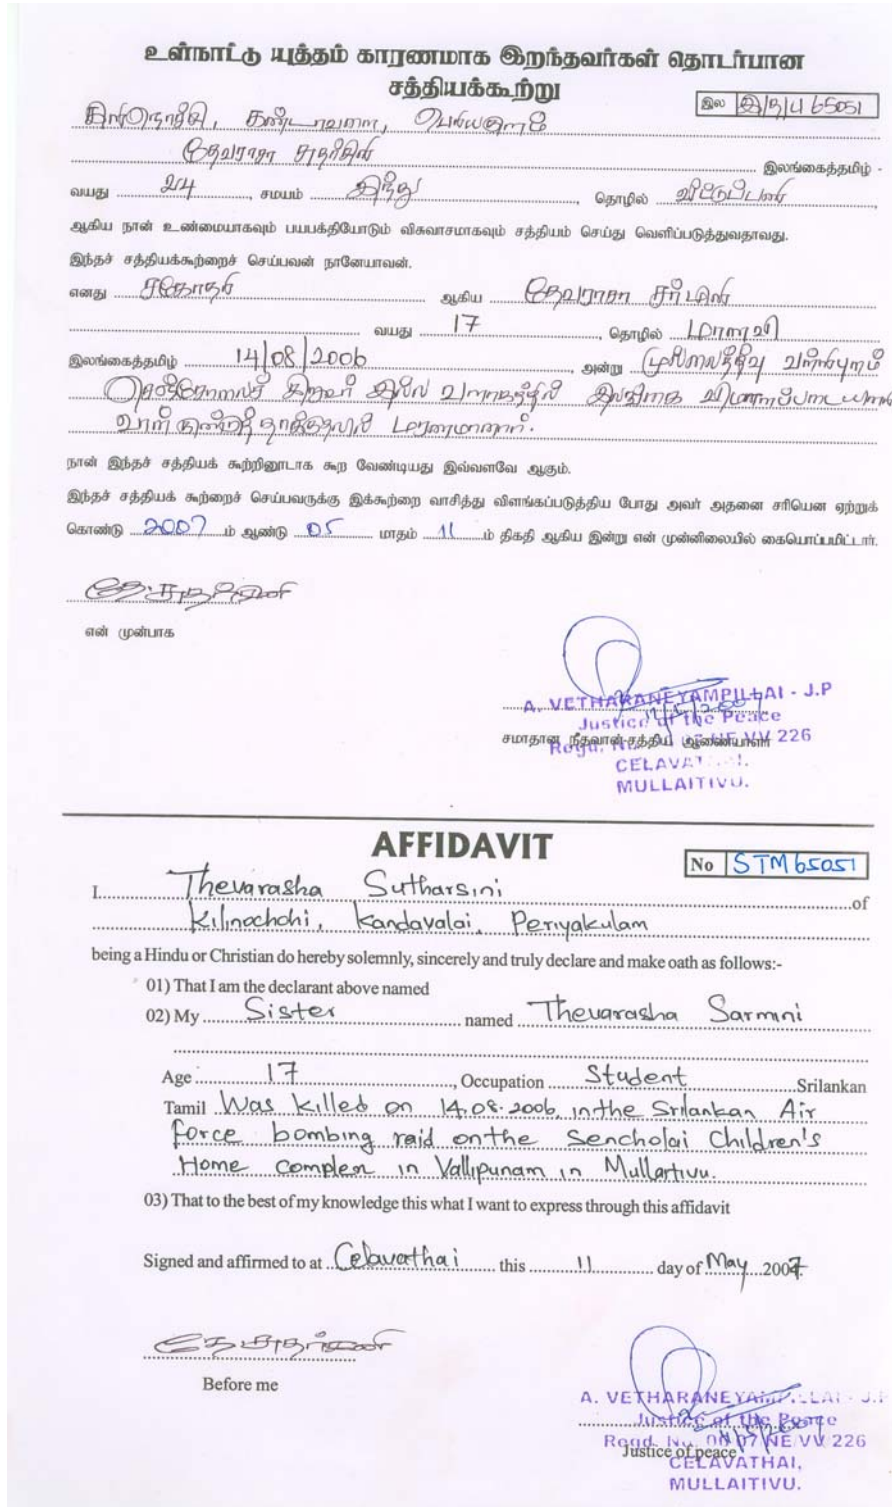 உள்நாட்டு யுத்தம் காரணமாக இறந்தவர்கள் தொடர்பான
சத்தியக்கூற்று
இல இ/த/பு 65051
கிளிநொச்சி, கண்டாவளை, பெரியகுளம்
தேவராசா சுதர்சினி இலங்கைத்தமிழ் -
வயது 24, சமயம் இந்து, தொழில் வீட்டுப்பணி,
ஆகிய நான் உண்மையாகவும் பயபக்தியோடும் விசுவாசமாகவும் சத்தியம் செய்து வெளிப்படுத்துவதாவது.
இந்தச் சத்தியக்கூற்றைச் செய்பவன் நானேயாவன்.
எனது சகோதரி ஆகிய தேவராசா சர்மினி
வயது 17, தொழில் மாணவி
இலங்கைத்தமிழ் 14/08/2006, அன்று முல்லைத்தீவு வள்ளிபுனம்
செஞ்சோலைச் சிறுவர் இல்ல வளாகத்தில் இலங்கை விமானப்படையின்
வான் குண்டுத் தாக்குதலில் மரணமானார்.
நான் இந்தச் சத்தியக் கூற்றினூடாக கூற வேண்டியது இவ்வளவே ஆகும்.
இந்தச் சத்தியக் கூற்றைச் செய்பவருக்கு இக்கூற்றை வாசித்து விளங்கப்படுத்திய போது அவர் அதனை சரியென ஏற்றுக்
கொண்டு 2007 ம் ஆண்டு 05 மாதம் 11 ம் திகதி ஆகிய இன்று என் முன்னிலையில் கையொப்பமிட்டார்.
தே. சுதர்சினி
என் முன்பாக
A. VETHARANEYAMPILLAI - J.P
11/5/2007
Justice of the Peace
சமாதான நீதவான்-சத்திய ஆணையாளர்
Regd. No. NE VV 226
CELAVATHAI.
MULLAITIVU.
AFFIDAVIT
No STM 65051
I Thevarasha Sutharsini of
Kilinochchi, Kandavalai, Periyakulam
being a Hindu or Christian do hereby solemnly, sincerely and truly declare and make oath as follows:-
01) That I am the declarant above named
02) My Sister named Thevarasha Sarmini
Age 17, Occupation Student Srilankan
Tamil Was killed on 14.08.2006, in the Srilankan Air
force bombing raid on the Sencholai Children's
Home complex in Vallipunam in Mullaitivu.
03) That to the best of my knowledge this what I want to express through this affidavit
Signed and affirmed to at Celavathai this 11 day of May 2007.
தே. சுதர்சினி
Before me
A. VETHARANEYAMPILLAI - J.P
Justice of the Peace
11/5/2007
Regd. No. 06 07 NE/VV 226
Justice of peace
CELAVATHAI,
MULLAITIVU.